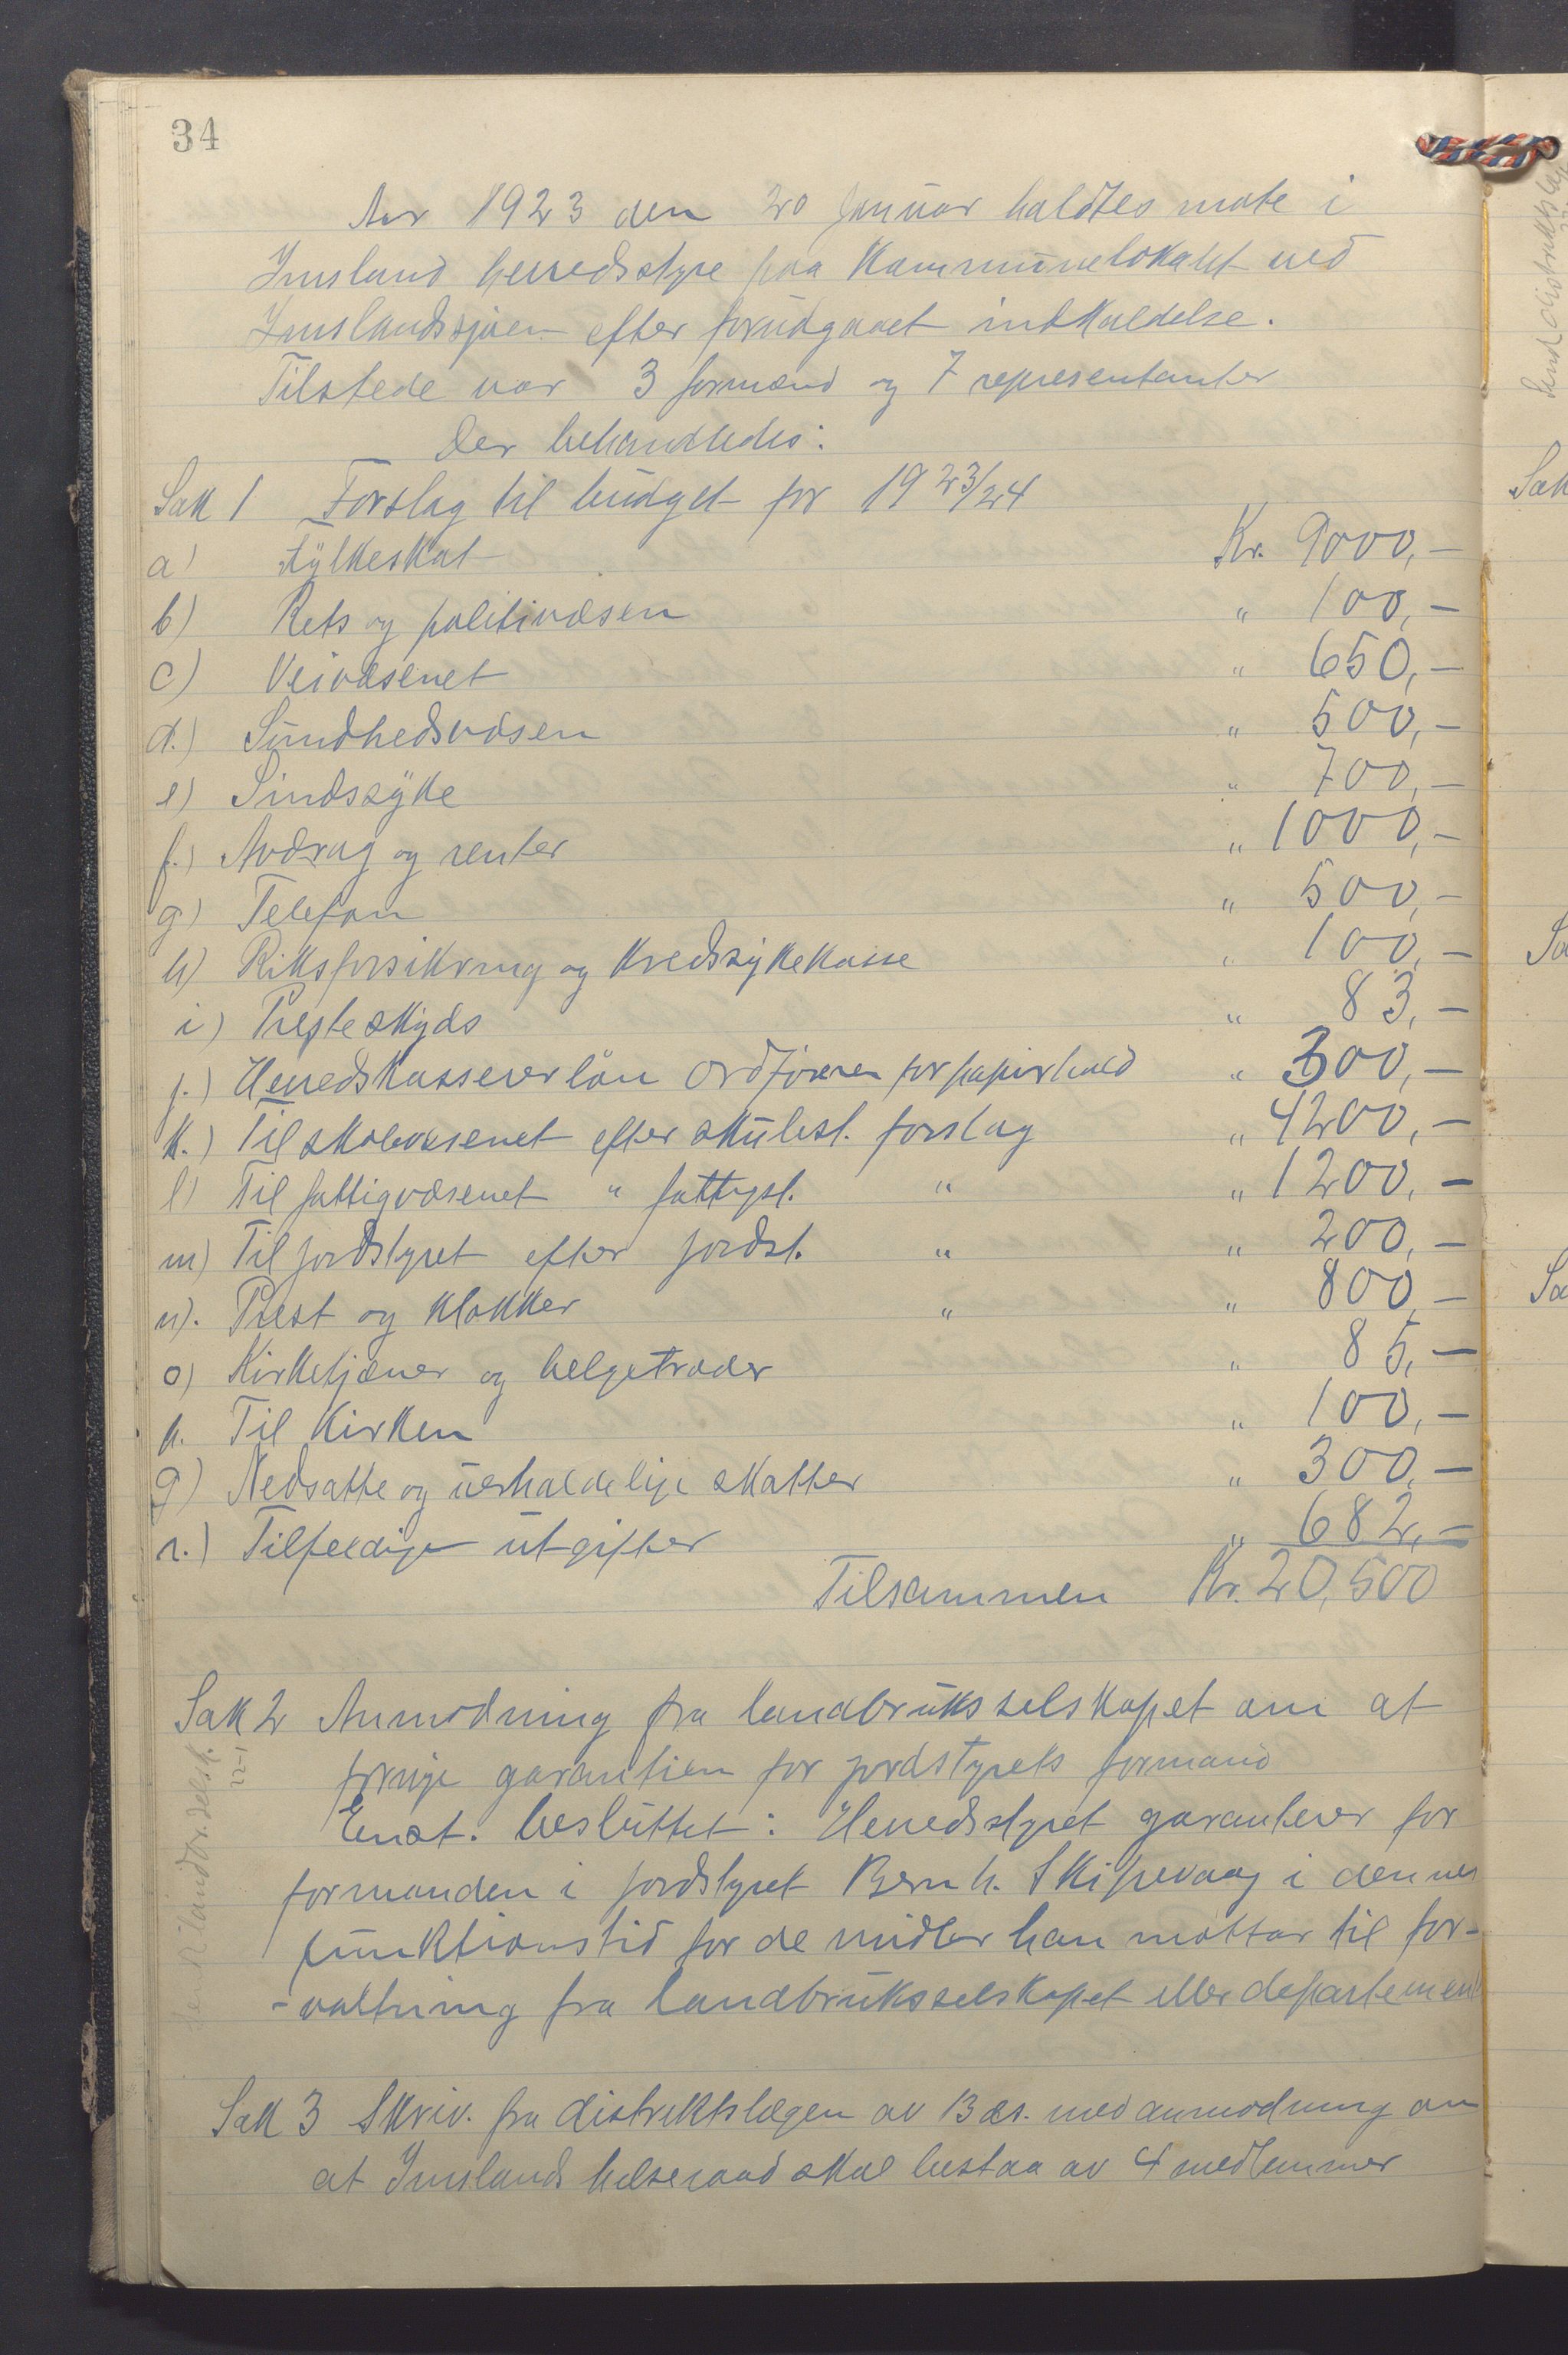 34
Aar 1923 den 20 januar holdtes møte i
Imsland herredsstyre paa Kommunelokalet ved
Imslandssjøen efter forutgaaet indkaldelse.
Tilstede var 3 formænd og 7 representanter
Der behandledes:
Sak 1 Forslag til budget for 1923/24
a) Fylkeskat Kr. 9000,-
b) Rets og politivæsen " 100,-
c) Veivæsenet " 650,-
d.) Sundhedsvæsen " 500,-
e) Sindssyke " 700,-
f.) Avdrag og renter " 1000,-
g) Telefon " 500,-
h) Riksforsikring og Kredssykekasse " 100,-
i) Presteskyds " 83,-
j.) Herredskassererløn Ordføreren for papirhold " 300,-
k.) Til skolevæsenet efter skulest. forslag " 4200,-
l) Til fattigvæsenet " fattigst. " " 1200,-
m) Til jordstyret efter jordst. " " 200,-
n). Prest og klokker " " 800,-
o) Kirketjener og belgetræder " 85,-
p. Til Kirken " 100,-
q) Nedsatte og uerholdelige skatter " 300,-
r.) Tilfeldige utgifter " 682,-
Tilsammen Kr. 20,500
Sak 2 Anmodning fra landbruksselskapet om at
fornye garantien for jordstyrets formand
Enst. besluttet: Herredsstyret garanterer for
formanden i jordstyret Bernh. Skipevaag i dennes
funktionstid for de midler han mottar til for-
-valtning fra landbruksselskapet eller departement
22-1
Sak 3 Skriv. fra distriktslægen av 13 ds. med anmodning om
at Imslands helseraad skal bestaa av 4 medlemmer
Sak